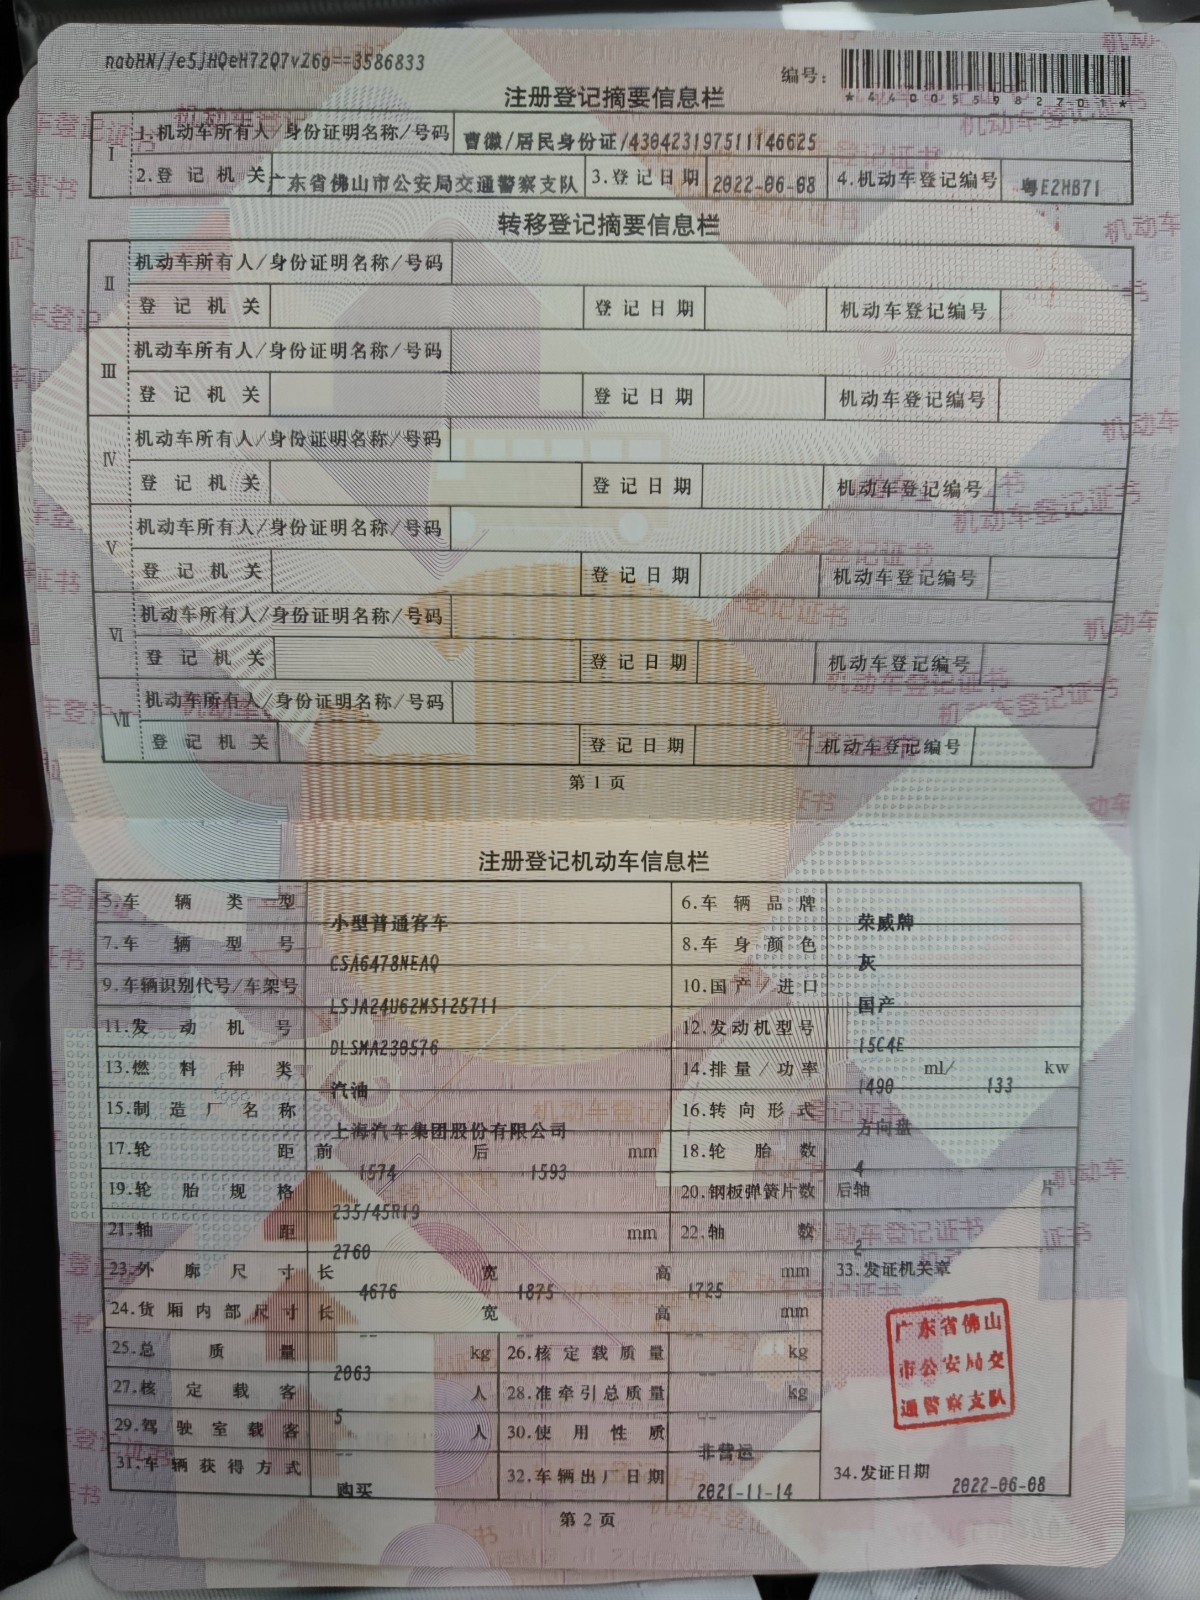 naoHN//e5jHQeH72Q7vZ6g==3586833
编号：
*440055982701*
注册登记摘要信息栏
Ⅰ 1.机动车所有人/身份证明名称/号码 曹徽/居民身份证/430423197511146625
2.登记机关 广东省佛山市公安局交通警察支队 3.登记日期 2022-06-08 4.机动车登记编号 粤E2MB71
转移登记摘要信息栏
Ⅱ 机动车所有人/身份证明名称/号码
登记机关 登记日期 机动车登记编号
Ⅲ 机动车所有人/身份证明名称/号码
登记机关 登记日期 机动车登记编号
Ⅳ 机动车所有人/身份证明名称/号码
登记机关 登记日期 机动车登记编号
Ⅴ 机动车所有人/身份证明名称/号码
登记机关 登记日期 机动车登记编号
Ⅵ 机动车所有人/身份证明名称/号码
登记机关 登记日期 机动车登记编号
Ⅶ 机动车所有人/身份证明名称/号码
登记机关 登记日期 机动车登记编号
第1页
注册登记机动车信息栏
5.车辆类型 小型普通客车 6.车辆品牌 荣威牌
7.车辆型号 CSA6478NEAQ 8.车身颜色 灰
9.车辆识别代号/车架号 LSJA24U62MS125711 10.国产/进口 国产
11.发动机号 DLSMA230576 12.发动机型号 15C4E
13.燃料种类 汽油 14.排量/功率 1490 ml/ 133 kw
15.制造厂名称 上海汽车集团股份有限公司 16.转向形式 方向盘
17.轮距 前 1574 后 1593 mm 18.轮胎数 4
19.轮胎规格 235/45R19 20.钢板弹簧片数 后轴 片
21.轴距 2760 mm 22.轴数 2
23.外廓尺寸 长 4676 宽 1875 高 1725 mm 33.发证机关章
24.货厢内部尺寸 长 -- 宽 -- 高 -- mm
25.总质量 2063 kg 26.核定载质量 -- kg
27.核定载客 5 人 28.准牵引总质量 -- kg
29.驾驶室载客 -- 人 30.使用性质 非营运
31.车辆获得方式 购买 32.车辆出厂日期 2021-11-14
广东省佛山
市公安局交
通警察支队
34.发证日期 2022-06-08
第2页